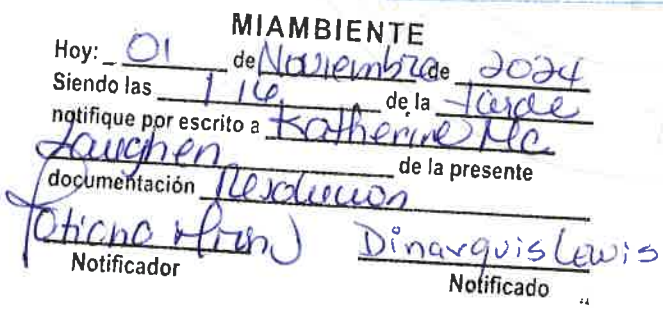 MIAMBIENTE
Hoy: 01 de Noviembre de 2024
Siendo las 1 16 de la tarde
notifique por escrito a Katherine Mc.
Laughen de la presente
documentación Resolucion
Dinarquis Lewis
Notificador Notificado